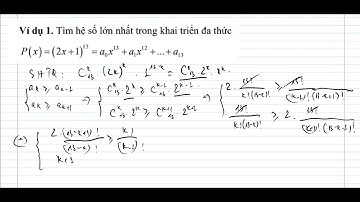 Ví dụ 1. Tìm hệ số lớn nhất trong khai triển đa thức
P(x) = (2x+1)^13 = a_0x^13 + a_1x^12 + ... + a_13
SHTQ: C_13^k (2x)^k . 1^(13-k) = C_13^k . 2^k . x^k
{ a_k ≥ a_(k-1) → { C_13^k . 2^k ≥ C_13^(k-1) . 2^(k-1) → { 2 . 13!/(k!(13-k)!) ≥ 13!/((k-1)!(13-k+1)!)
{ a_k ≥ a_(k+1) { C_13^k . 2^k ≥ C_13^(k+1) . 2^(k+1) { 13!/(k!(13-k)!) ≥ 2 . 13!/((k+1)!(13-k-1)!)
(→) { 2 . (13-k+1)!/(13-k)! ≥ k!/(k-1)!
k+1